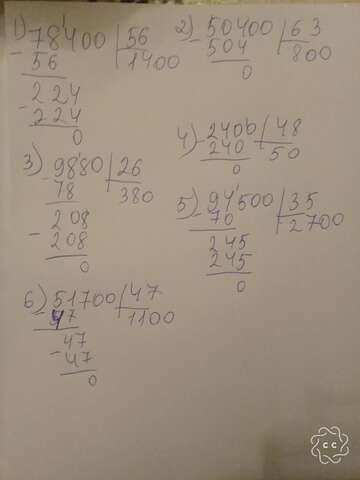 1) 78400 | 56
- 56 | 1400
224
- 224
0
2) 50400 | 63
- 504 | 800
0
3) 9880 | 26
- 78 | 380
208
- 208
0
4) 2400 | 48
- 240 | 50
0
5) 94500 | 35
- 70 | 2700
245
245
0
6) 51700 | 47
- 47 | 1100
47
- 47
0
CC